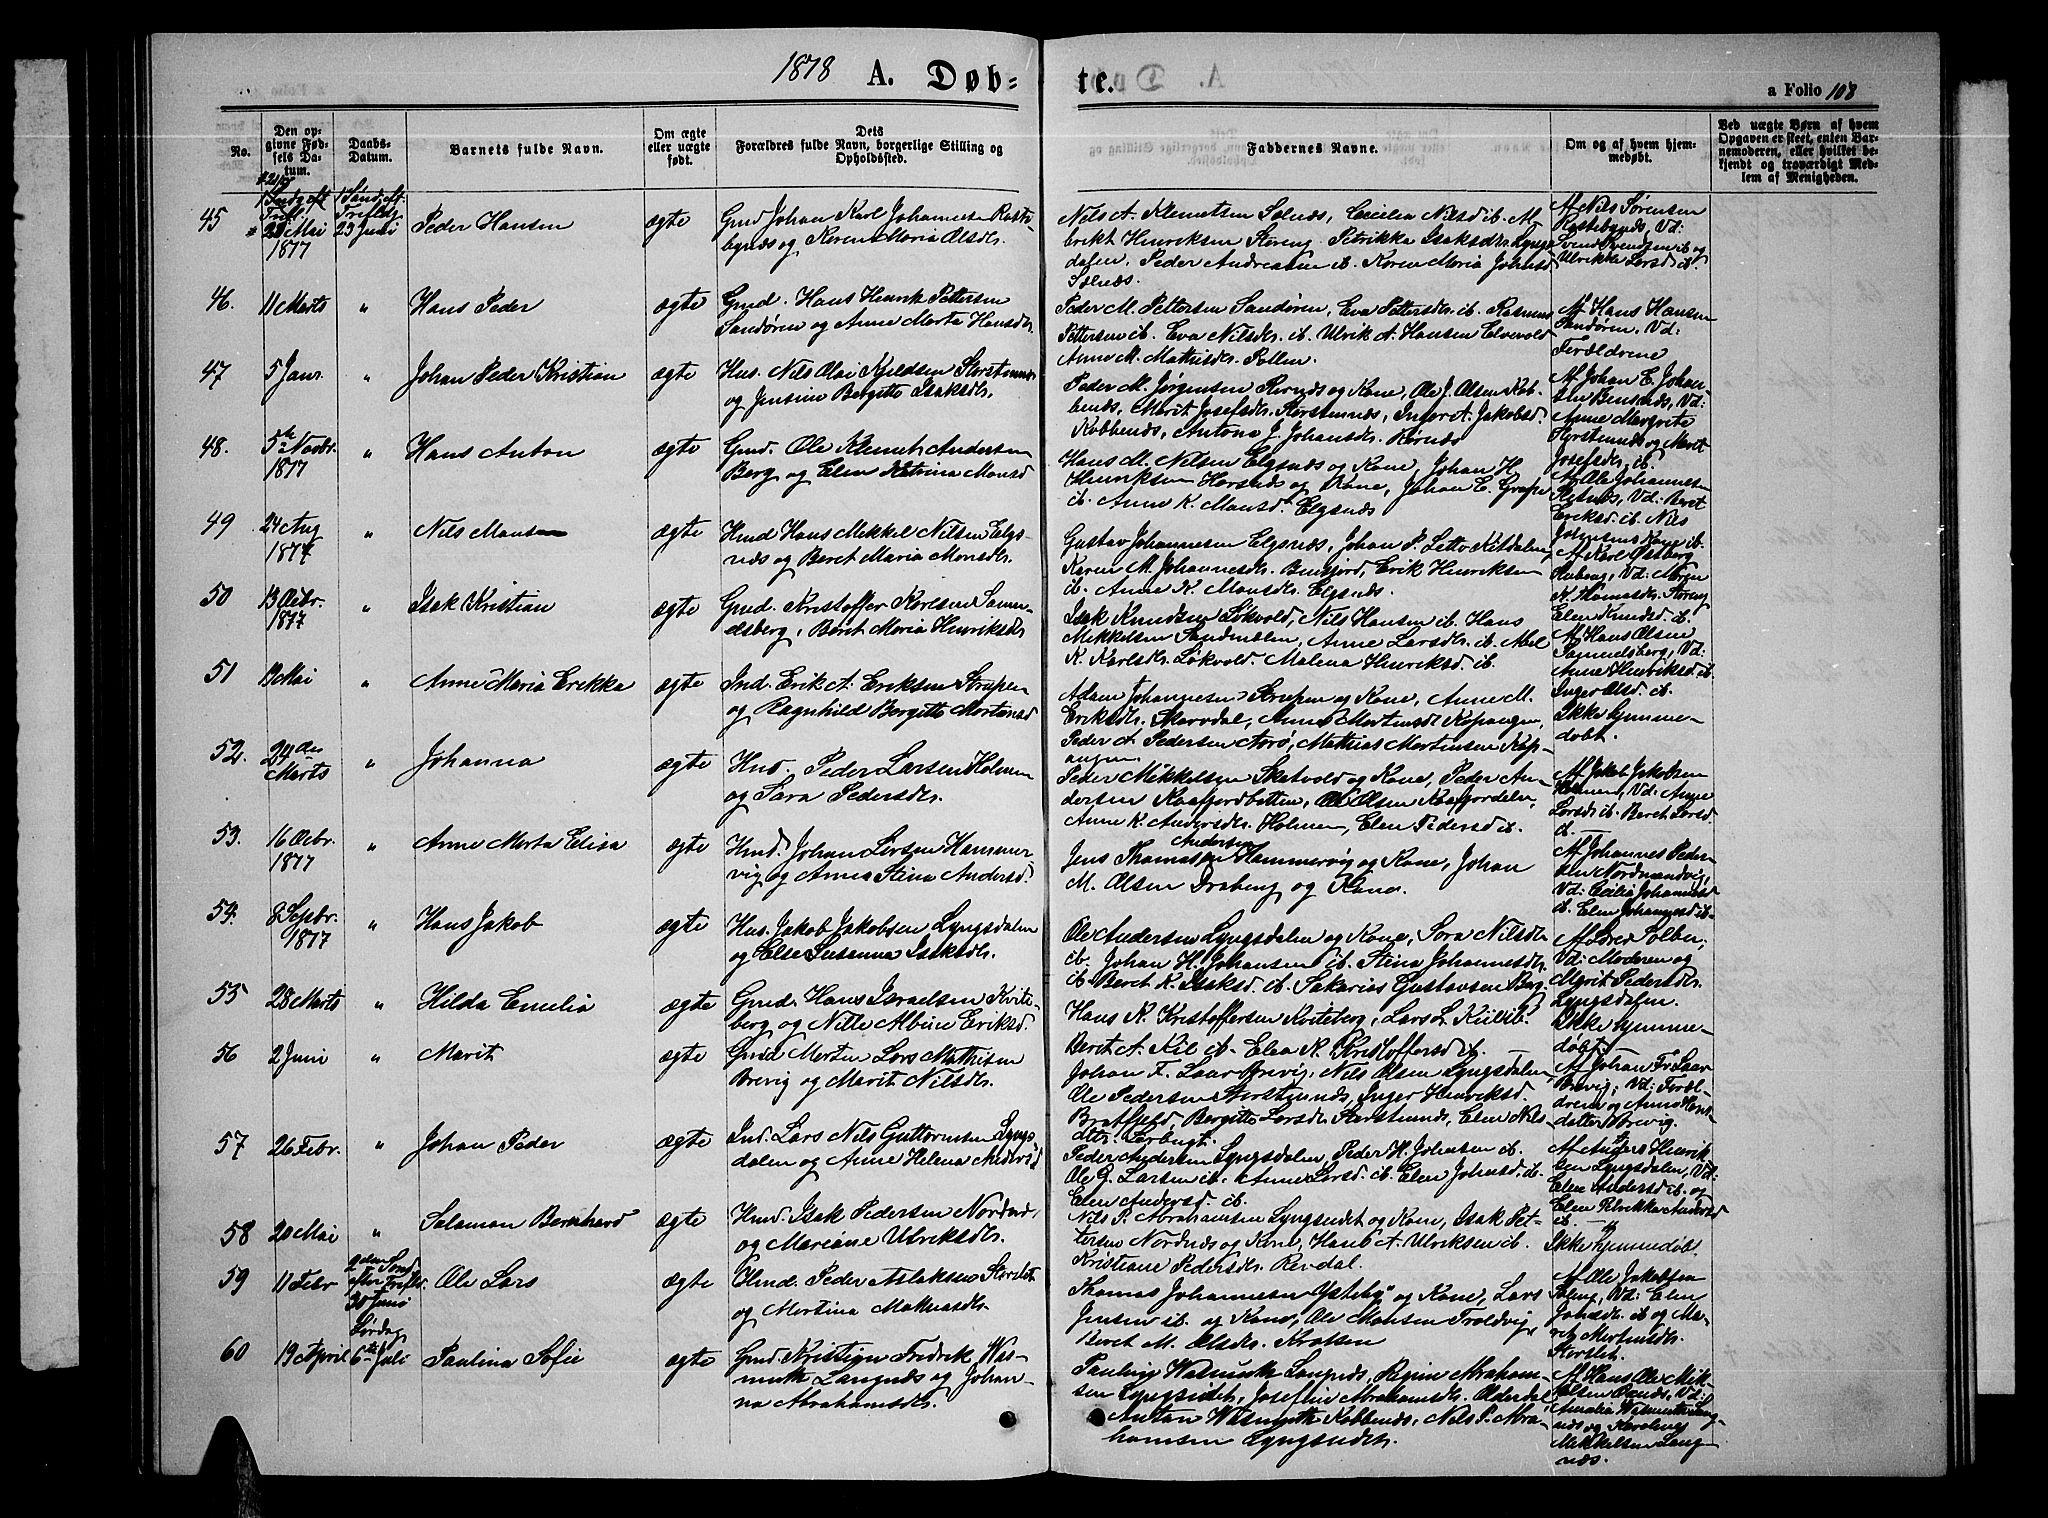 1878 A. Døb- te. a Folio 108
No.
Den op-
givne Fød-
sels Da-
tum.
Daabs-
Datum.
Barnets fulde Navn.
Om ægte
eller uægte
født.
Dets
Forældres fulde Navn, borgerlige Stilling og
Opholdssted.
Faddernes Navne.
Om og af hvem hjem-
medøbt.
Ved uægte Børn af hvem
Opgaven er skeet, enten Bar-
nemoderen, eller hvilket be-
kjendt og troværdigt Med-
lem af Menigheden.
45
28 Mai
1877
1 Sønd. eft.
Trefldg
23 Juni
Peder Hansen
ægte
Gmd Johan Karl Johannesen Rast-
bynæs og Karen Maria Olsdtr.
Nils A. Klemetsen Solnæs, Cecilia Nilsd ib. Al-
brikt Henriksen Storeng. Petrikka Isaksdtr. Lyngs-
dalen. Peder Andreassen ib. Karen Maria Johansd
Solnæs.
Af Nils Sørensen
Rastebynæs, Vd:
Svend Svendsen ib og
Ulrikka Larsd ib.
46.
11 Marts
"
Hans Peder
ægte
Gmd. Hans Henrik Pettersen
Sandøren og Anne Marta Hansdtr.
Peder M. Pettersen Sandøren, Eva Pettersdtr. ib. Rasmus
Pettersen ib. Eva Nilsdtr. ib. Ulrik A. Hansen Elvevold
Anne M. Mathisdtr. Pollen.
Af Hans Hansen
Sandøren, Vd:
Forældrene
47
5 Janr.
"
Johan Peder Kristian
ægte
Hus. Nils Olai Kjeldsen Storstennæs
og Jensine Bergitte Isaksdtr.
Peder M. Jørgensen Rørnæs og Kone, Ole J. Olsen Kob-
benæs, Marit Josefsdtr. Storstennæs, Inger A. Jakobsd.
Kobbenæs, Antona J. Johansdtr. Rørnæs
Af Johan E. Johan-
sen Bensnæs, Vd:
Anne Margrete
Storstennæs og Marit
Josefsdtr. ib.
48.
5te Novbr.
1877
"
Hans Anton
ægte
Gmd. Ole Klemet Andersen
Berg og Elen Katrina Monsd
Hans M. Nilsen Elgsnæs og Kone, Johan H.
Henriksen Horsnæs og Kone, Johan E. Grape
ib. Anne K. Monsd. Elgsnæs
Af Ole Johannesen
Vd: Beret
Eriksd. ib. Nils
Josefsens Kone ib.
49
24 Aug
1877
"
Nils Mansen
ægte
Hmd Hans Mikkel Nilsen Elgs-
næs og Beret Maria Monsdtr.
Gustav Johannesen Elgsnæs, Johan P. Letto Kitdalen,
Karen M. Johannesdtr. Bensfjord, Erik Henriksen
ib. Anne K. Monsdtr. Elgsnæs.
Af Karl Østberg
Vd: Maren
K. Thomasdtr. Storeng
Elen Knudsd. ib.
50
13 Decbr.
1877
"
Isak Kristian
ægte
Gmd. Kristoffer Karlsen Samu-
elsberg, Beret Maria Henriksdtr
Isak Knudsen Løkvold, Nils Hansen ib. Hans
Mikkelsen Sandmælen, Anne Larsdtr. ib. Abel
K. Karlsdtr. Løkvold. Malena Henriksd ib.
Af Hans Olsen
Samuelsberg, Vd:
Anne Henriksd. ib.
Inger Olsd. ib.
51
19 Mai
"
Anne Maria Erekka
ægte
Ind. Erik A. Eriksen Strupen
og Ragnhild Bergitte Mortensd
Adam Johannesen Strupen og Kone, Anne M.
Eriksdtr. Skarvdal, Anne Mortensdt. Kopangen,
Peder A. Pedersen Norø, Mathias Mortensen Kop-
angen
Ikke hjemme-
døbt.
52.
24de
Marts
"
Johanna
ægte
Hus. Peder Larsen Holmen
og Sara Pedersdtr.
Peder Mikkelsen Sletvold og Kone, Peder An-
dersen Kaafjordbotten, Ole Olsen Kaafjordalen,
Anne K. Andersdtr. Holmen, Elen Pedersd ib.
Af Jakob Jakobsen
Holmen, Vd: Anne
Larsdtr ib. Beret Larsd.
ib.
53.
16 Decbr.
1877
"
Anne Marta Elisa
ægte
Hmd. Johan Larsen Hammer-
vig og Anne Stina Andersd.
Jens Thomassen Andersen Hammervig og Kone, Johan
M. Olsen Draberg og Kone.
Af Johannes Peder-
sen Nordmandvig,
Vd: Cecilia Johannesd
ib. Elen Johannesd ib.
54.
8 Septbr.
1877
"
Hans Jakob
ægte
Hus. Jakob Jakobsen Lyngsdalen
og Else Susanna Isaksdtr.
Ole Andersen Lyngsdalen og Kone, Sara Nilsdtr.
ib. Johan H. Johansen ib. Stina Johannesdtr.
ib. Beret K. Isaksd. ib. Sakarias Gustavsen Berg.
Af Lored Solber,
Vd: Moderen og
Marit Pedersdtr.
Lyngsdalen.
55
28 Marts
"
Hilda Emelia
ægte
Gmd. Hans Israelsen Kvite-
berg og Nille Albine Eriksd.
Hans R. Kristoffersen Kviteberg, Lars L. Kiil ib.
Beret A. Kil ib. Elea K. Kristoffersd ib.
Ikke hjemme-
døbt.
56
2 Juni
"
Marit
ægte
Gmd Morten Lars Mathisen
Brevig og Marit Nilsdtr.
Johan F. Laar Brevig, Nils Olsen Lyngsdalen,
Ole Pedersen Storstennæs, Inger Henriksd.
Bratfjeld, Bergitte Larsdtr. Storstennæs, Elen Nils-
dtr. Sørbugt.
Af Johan Fr Laar
Brevig; Vd: Foræl-
drene og Anne Hans-
datter Brevig.
57
26 Febr.
"
Johan Peder
ægte
Ind. Lars Nils Guttormsen Lyngs-
dalen og Anne Helena Andersd
Peder Andersen Lyngsdalen, Peder H. Johnsen ib.
Ole G. Larsen ib. Anne Larsd. ib. Elen Johnsd. ib.
Elen Andersd. ib.
Af Anders Henrik-
sen Lyngsdalen, Vd:
Elen Andersd ib. og
Elen Rebekka Andersd
ib.
58
20 Mai
"
Salamon Bernhard
ægte
Hmd. Isak Pedersen Nordnæs
og Mariane Ulriksdtr.
Nils P. Abrahamsen Lyngseidet og Kone, Isak Pet-
tersen Nordnæs og Kone, Hans A. Ulriksen ib.
Kristiane Pedersdtr. Rendal.
Ikke hjemmedøbt
59
11 Febr
2den Sønd
efter Trefldg
30 Juni
Ole Lars
ægte
Hmd. Peder Aslaksen Storslet
og Martina Mathiasdtr.
Thomas Johannesen Ysteby og Kone, Lars
Jensen ib. og Kone, Ole Mansen Troldvig,
Beret M. Olsdtr. Kratsen
Af Ole Jakobsen
Soleng, Vd: Elen
Johnsdtr. ib og Ma-
rit Mortensdtr.
Storslet.
60
19 April
Lørdag
6te Juli
Paulina Sofie
ægte
Gmd. Kristian Fredrik Was-
muth Langnæs og Johan-
na Abrahamsdtr.
Pauline Wasmuth Langnæs, Regine Abraham-
sen Lyngseidet, Josefine Abrahamsdtr. Olderdal,
Antan Wasmuth Kobbenæs, Nils P. Abra-
hamsen Lyngseidet.
Af Hans Ole Mik-
kelsen Oxnæs, Vd:
Amalia Wasmuth Lang-
næs og Karolines
Mikkelsen Lang-
næs.